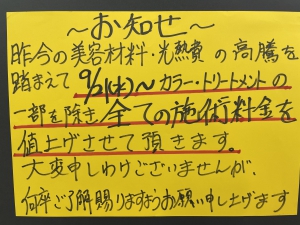 ～お知せ～
昨今の美容材料・光熱費の高騰を
踏まえて9/1(水)～カラー・トリートメントの
一部を除き全ての施術料金を
値上げさせて頂きます。
大変申しわけございませんが、
何卒ご了解賜りますようお願い申し上げます